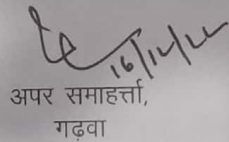 16/12/22
अपर समाहर्त्ता,
गढ़वा